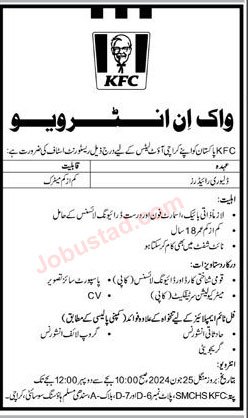 KFC
واک اِن انٹرویو
KFC پاکستان کو اپنے کراچی آؤٹ لیٹس کے لیے درج ذیل ریسٹورنٹ اسٹاف کی ضرورت ہے:
عہدہ
قابلیت
ڈلیوری رائیڈرز
کم از کم میٹرک
اہلیت:
لازماً ذاتی بائیک، اسمارٹ فون اور درست ڈرائیونگ لائسنس کے حامل
کم از کم عمر 18 سال
نائٹ شفٹ میں بھی کام کرسکتا ہو
درکار دستاویزات:
قومی شناختی کارڈ اور ڈرائیونگ لائسنس (کاپی)
پاسپورٹ سائز تصویر
میٹرکولیشن سرٹیفکیٹ (کاپی)
CV
فل ٹائم ایمپلائیز کے لیے تنخواہ کے علاوہ فوائد (کمپنی پالیسی کے مطابق)
حادثاتی انشورنس
گروپ لائف انشورنس
گریجویٹی
تاریخ: بروز منگل 25 جون 2024 صبح 10:00 بجے سے دوپہر 12:00 بجے تک
پتہ: SMCHS KFC، پلاٹ نمبر D-6 اور D-7، بلاک A، سندھی مسلم ہاؤسنگ سوسائٹی، کراچی
Jobustad.com